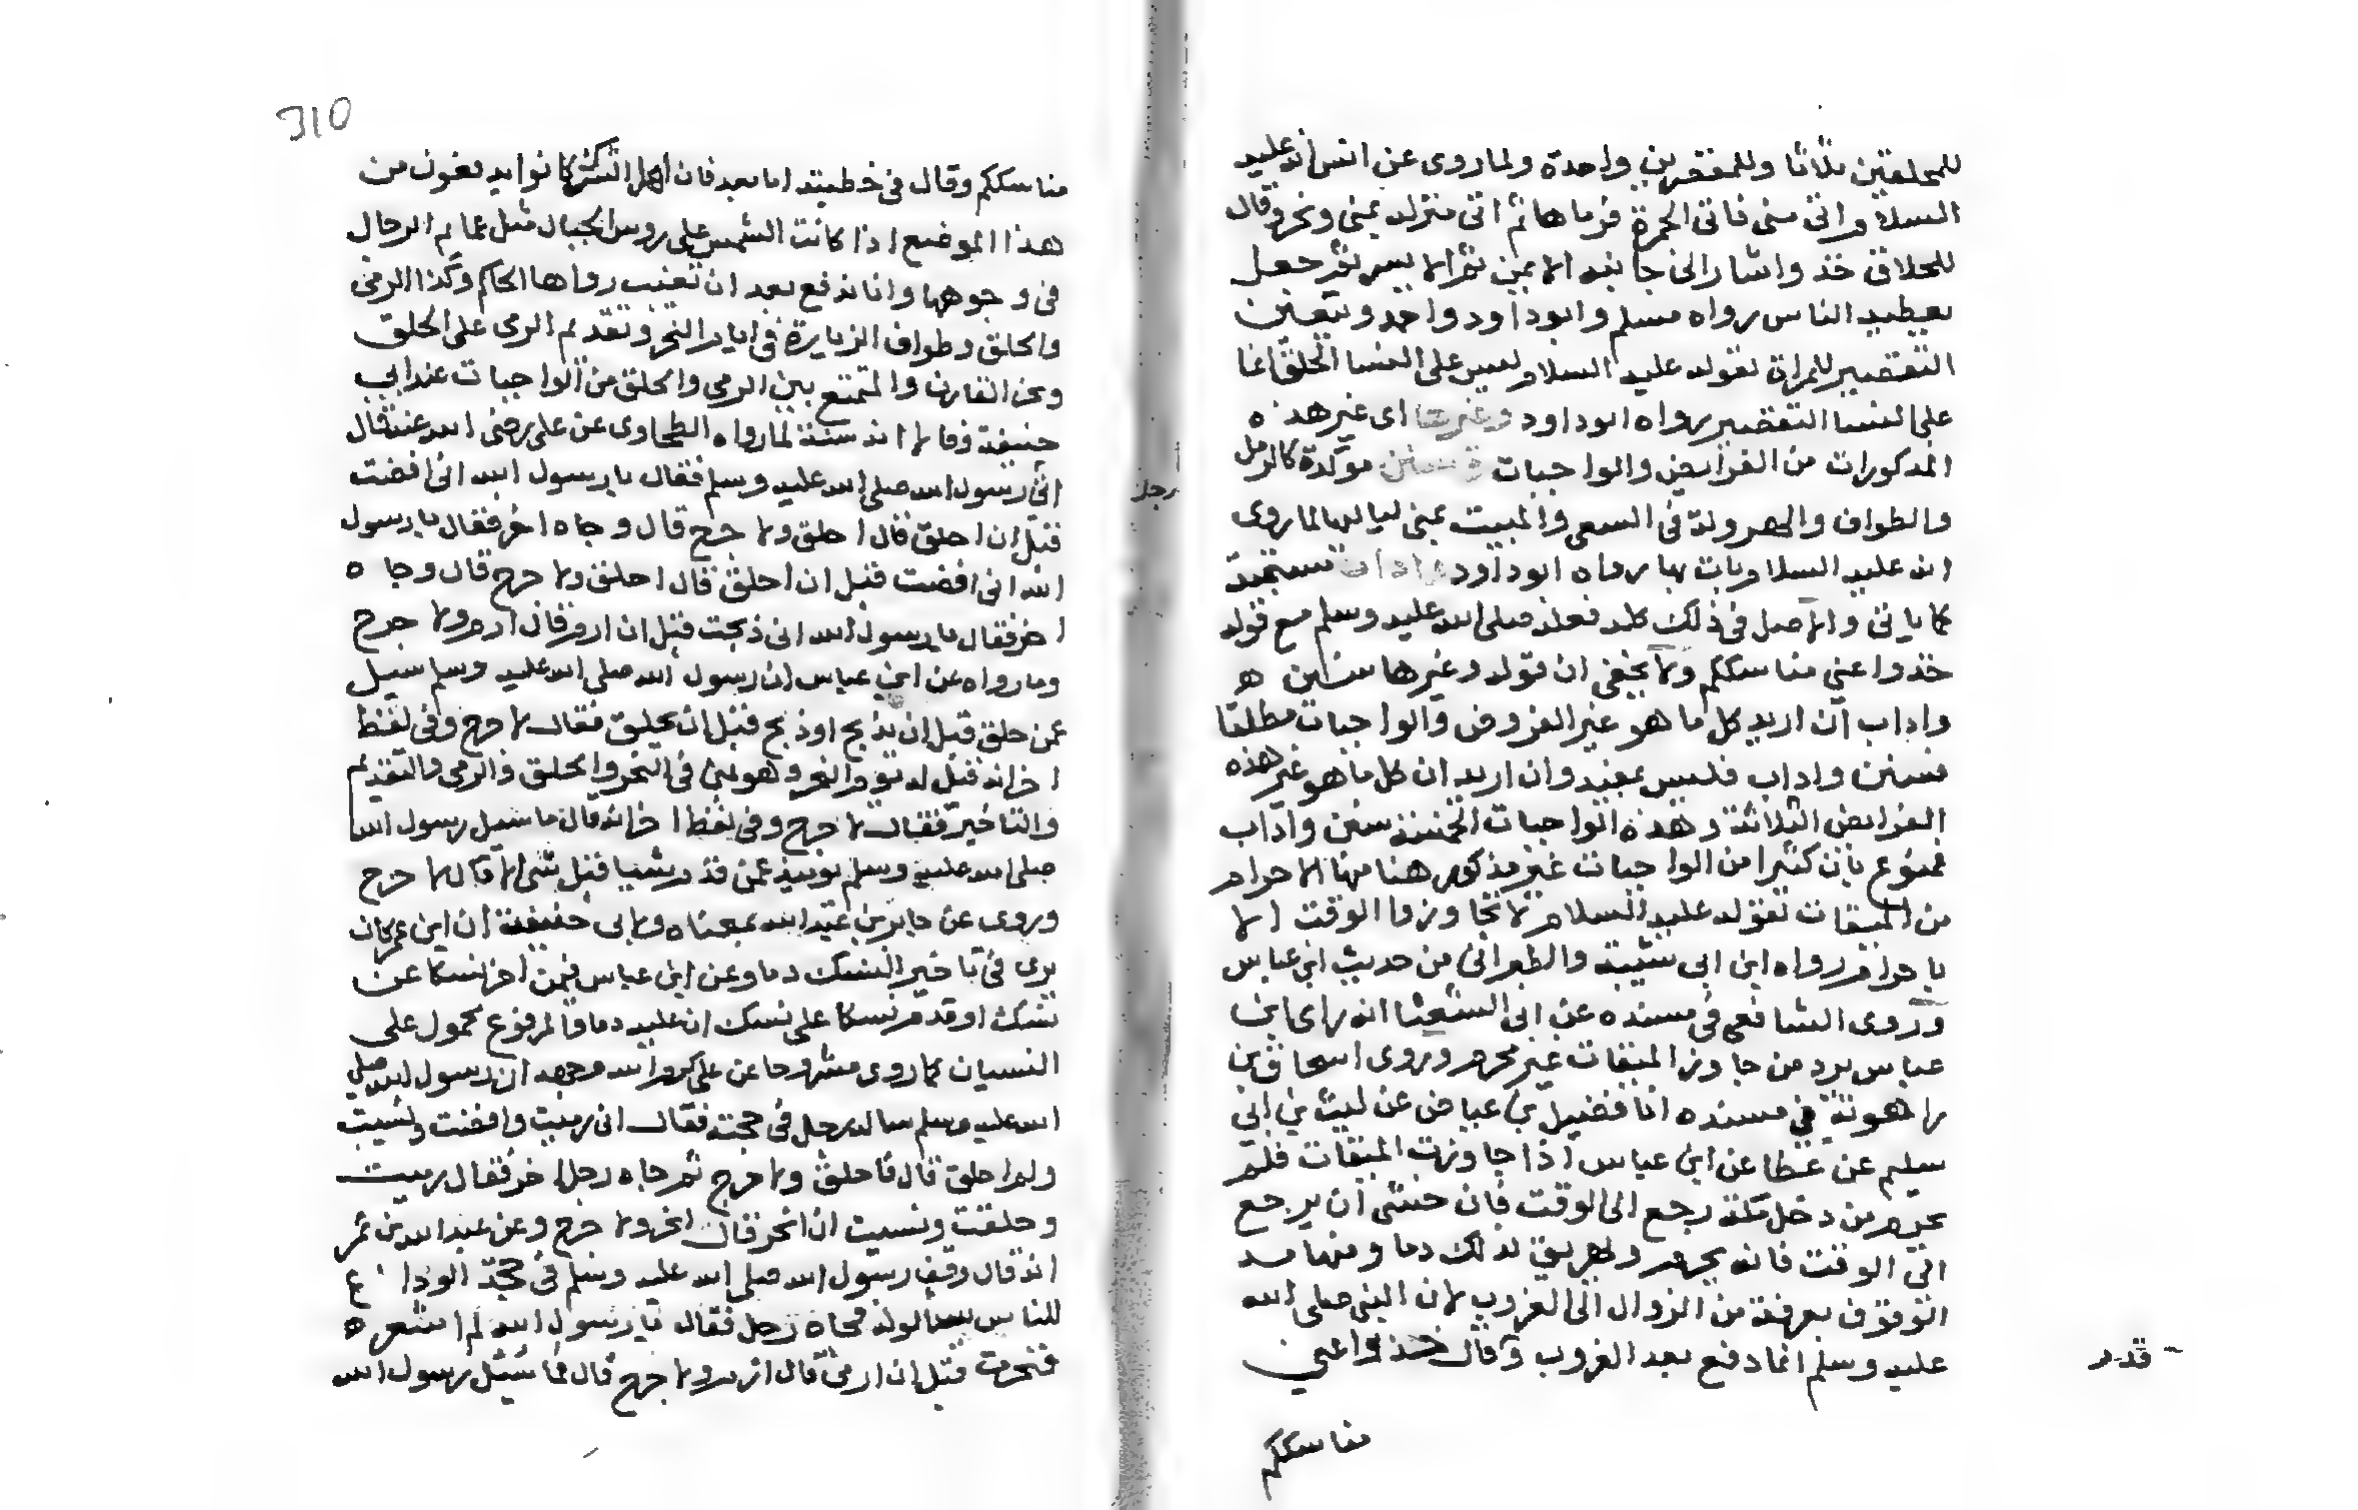 للمحلقين ثلاثا وللمقصرين واحدة ولما روى عن انس انه عليه
السلام اتى منى فاتى الجمرة فرماها ثم اتى منزله بمنى ونحر وقال
للحلاق خذ واشار الى جانبه الايمن ثم الايسر ثم جعل
يعطيه الناس رواه مسلم وابو داود واحمد ويتعين
التقصير للمراة لقوله عليه السلام ليس على النسا الحلق انما
على النسا التقصير رواه ابو داود وغيرها اى غير هذه
المذكورات من الفرايض والواجبات سنن موكدة كالرمل
والطواف والهرولة في السعى والمبيت بمنى لياليها لما روى
انه عليه السلام بات بها رواه ابو داود واداب مستحبة
كما ياتى والاصل في ذلك كله فعله صلى الله عليه وسلم مع قوله
خذوا عني مناسككم ولا يخفى ان قوله وغيرها سنن
واداب ان اريد كل ما هو غير الفروض والواجبات مطلقا
فسنن واداب فليس بمفيد وان اريد ان كل ما هو غير هذه
الفرايض الثلاثة وهذه الواجبات الخمسة سنن واداب
فممنوع بان كثيرا من الواجبات غير مذكور هنا منها الاحرام
من الميقات لقوله عليه السلام لا تجاوزوا الوقت الا
باحرام رواه ابن ابى شيبة والطبرانى من حديث ابن عباس
وروى الشافعى في مسنده عن ابى الشعثا انه راى ابن
عباس يرد من جاوز الميقات غير محرم وروى اسحاق بن
راهوية في مسنده انا فضيل بن عياض عن ليث بن ابى
سليم عن عطا عن ابن عباس اذا جاوزت الميقات فلم
يحرم من دخل مكة رجع الى الوقت فان خشى ان يرجع
الى الوقت فانه يحرم ويهريق لذلك دما ومنها مد
الوقوف بعرفة من الزوال الى الغروب لان النبى صلى الله
عليه وسلم انما دفع بعد الغروب وقال خذوا عني
مناسككم
قدم
رجل
310
مناسككم وقال في خطبته اما بعد فان اهل الشرك كانوا يدفعون من
هذا الموضع اذا كانت الشمس على روس الجبال مثل عمايم الرجال
في وجوهها وانا ندفع بعد ان تغيب رواها الحاكم وكذا الرمى
والحلق وطواف الزيارة في ايام النحر وتقديم الرمى على الحلق
ونحر القارن والمتمتع بين الرمى والحلق من الواجبات عند ابي
حنيفة وقالا انه سنة لما رواه الطحاوى عن على رضى الله عنه قال
اتى رسول الله صلى الله عليه وسلم فقال يا رسول الله انى افضت
قبل ان احلق قال احلق ولا حرج قال وجاه اخر فقال يا رسول
الله انى افضت قبل ان احلق قال احلق ولا حرج قال وجاه
اخر فقال يا رسول الله انى ذبحت قبل ان ارم قال ارم ولا حرج
وما رواه عن ابن عباس ان رسول الله صلى الله عليه وسلم سيل
عمن حلق قبل ان يذبح او ذبح قبل ان يحلق فقال لا حرج وفي لفظ
اخر انه قيل له يوم النحر وهو بمنى في النحر والحلق والرمى والتقديم
والتاخير فقال لا حرج وفي لفظ اخر انه قال ما سيل رسول الله
صلى الله عليه وسلم يوميذ عمن قدم شيا قبل شى الا قال لا حرج
وروى عن جابر بن عبد الله بمعناه ولابى حنيفة ان ابن عمر كان
يرى في تاخير النسك دما وعن ابن عباس فيمن اخر نسكا عن
نسك او قدم نسكا على نسك ان عليه دما والمرفوع محمول على
النسيان كما روى مشروحا عن على كرم الله وجهه ان رسول الله صلى
الله عليه وسلم ساله رجل في حجته فقال انى رميت وافضت ونسيت
ولم احلق قال فاحلق ولا حرج ثم جاه رجل اخر فقال رميت
وحلقت ونسيت ان انحر قال انحر ولا حرج وعن عبد الله بن عمر
انه قال وقف رسول الله صلى الله عليه وسلم في حجة الوداع
للناس يسالونه فجاه رجل فقال يا رسول الله لم اشعر
فنحرت قبل ان ارمى قال ارم ولا حرج قال فما سيل رسول الله